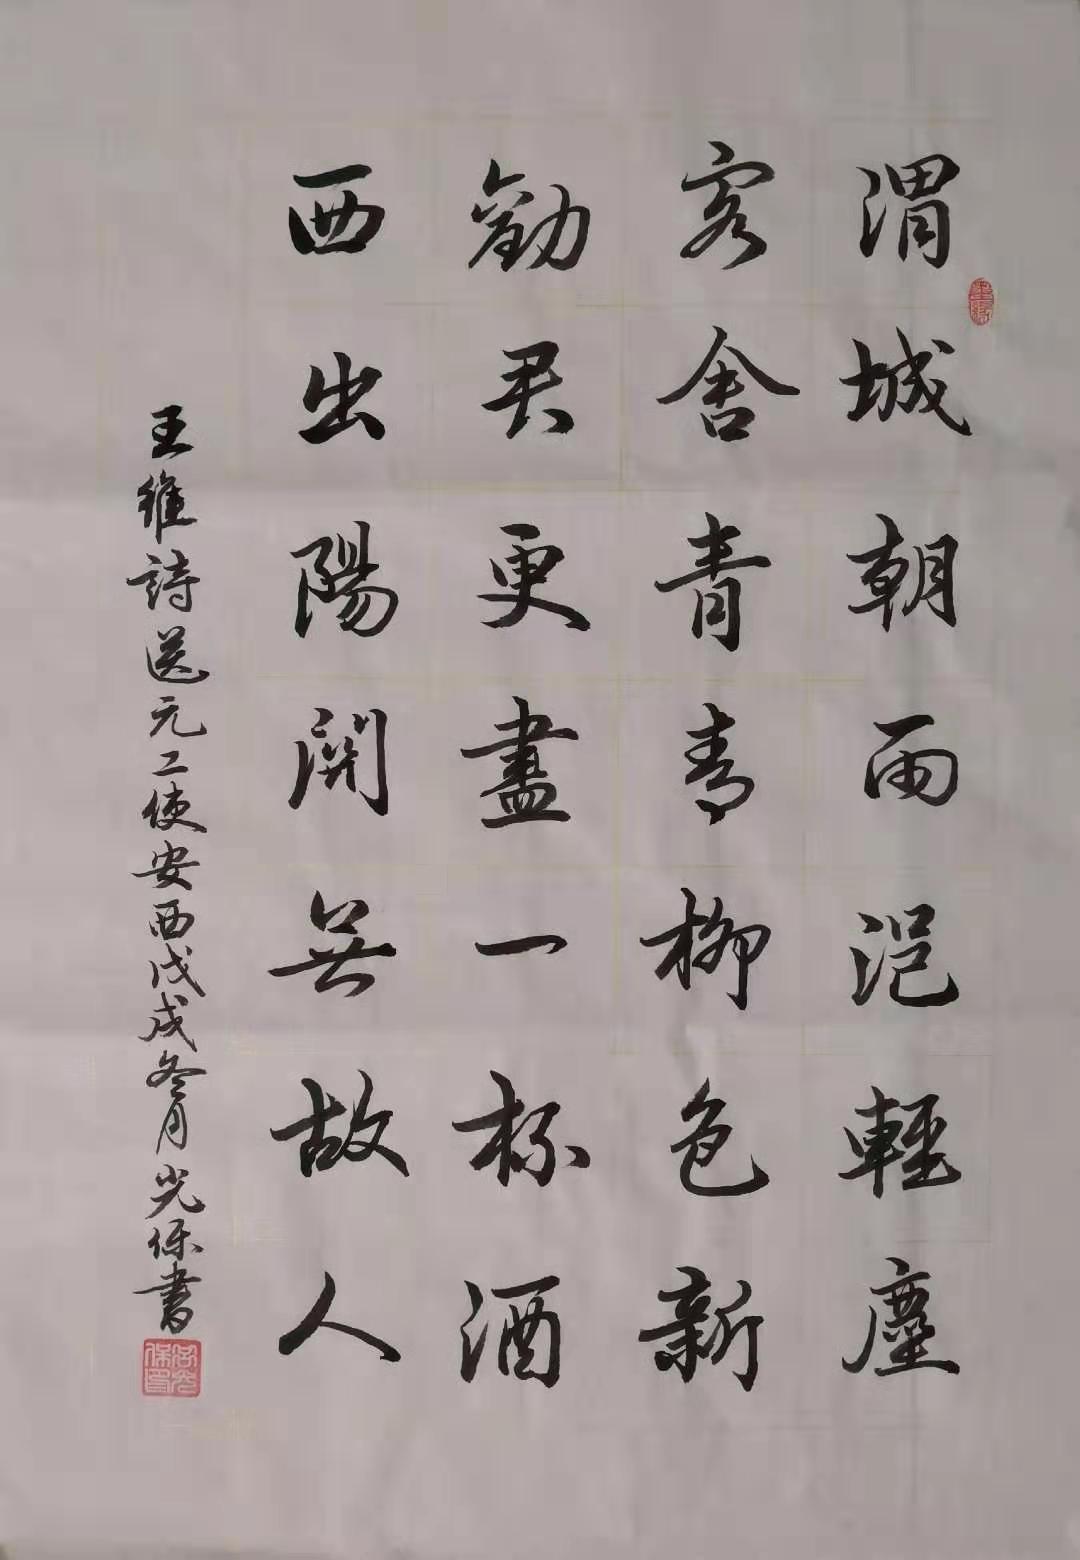 墨緣
渭城朝雨浥輕塵
客舍青青柳色新
勸君更盡一杯酒
西出陽關無故人
王維詩送元二使安西戊戌冬月光保書